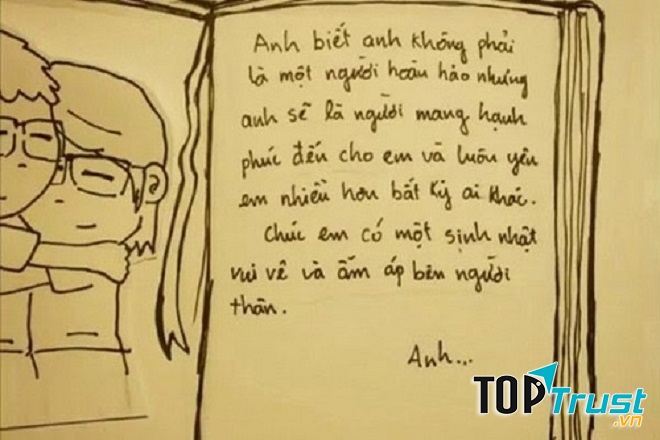 Anh biết anh không phải
là một người hoàn hảo nhưng
anh sẽ là người mang hạnh
phúc đến cho em và luôn yêu
em nhiều hơn bất kỳ ai khác.
Chúc em có một sinh nhật
vui vẻ và ấm áp bên người
thân.
Anh...
TOPTrust
.vn